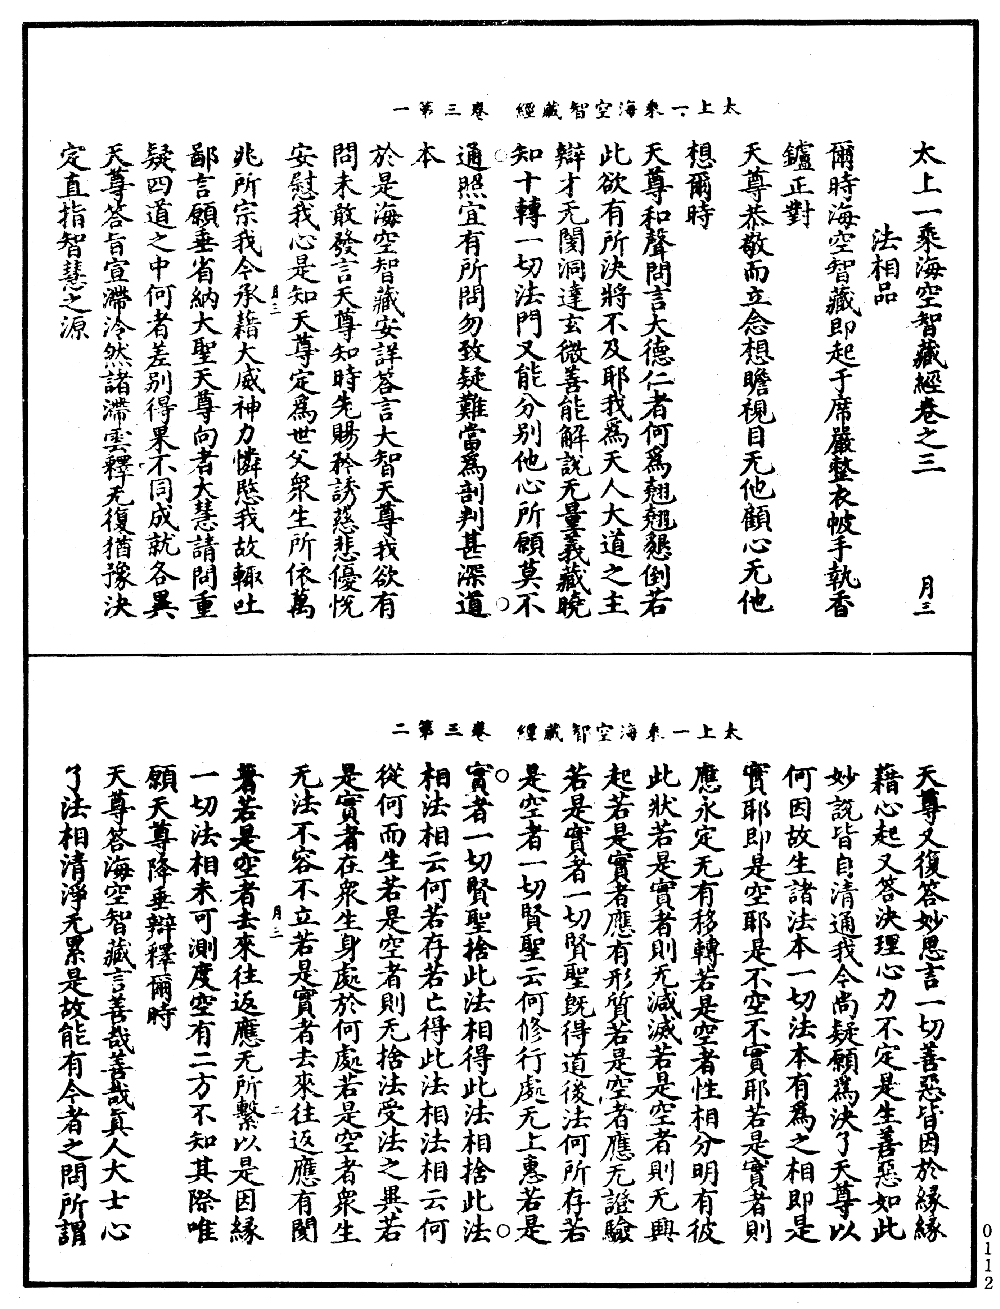 太上一乘海空智藏經　卷三第一
太上一乘海空智藏經卷之三　月三
法相品
爾時海空智藏即起于席嚴整衣帔手執香
鑪正對
天尊恭敬而立念想瞻視目无他顧心无他
想爾時
天尊和聲問言大德仁者何爲翹翹懇倒若
此欲有所決將不及耶我爲天人大道之主
辯才无閡洞達玄微善能解說无量義藏曉
知十轉一切法門又能分別他心所願莫不
通照宜有所問勿致疑難當爲剖判甚深道
本
於是海空智藏安詳荅言大智天尊我欲有
問未敢發言天尊知時先賜矜誘慈悲優恱
安慰我心是知天尊定爲世父衆生所依萬
月三
兆所宗我今承藉大威神力憐愍我故輙吐
鄙言願垂省納大聖天尊向者大慧請問重
疑四道之中何者差別得果不同成就各異
天尊答旨宣滯泠然諸滯雲釋无復猶豫決
定直指智慧之源
太上一乘海空智藏經　卷三第二
天尊又復答妙思言一切善惡皆因於緣緣
藉心起又答決理心力不定是生善惡如此
妙說皆自清通我今尚疑願爲決了天尊以
何因故生諸法本一切法本有爲之相即是
實耶即是空耶是不空不實耶若是實者則
應永定无有移轉若是空者性相分明有彼
此狀若是實者則无減滅若是空者則无興
起若是實者應有形質若是空者應无證驗
若是實者一切賢聖旣得道後法何所存若
是空者一切賢聖云何修行處无上惠若是
實者一切賢聖捨此法相得此法相捨此法
相法相云何若存若亡得此法相法相云何
從何而生若是空者則无捨法受法之異若
是實者在衆生身處於何處若是空者衆生
无法不容不立若是實者去來往返應有閡
月三　二
著若是空者去來往返應无所繫以是因緣
一切法相未可測度空有二方不知其際唯
願天尊降垂辯釋爾時
天尊答海空智藏言善哉善哉真人大士心
了法相清淨无累是故能有今者之問所謂
0112